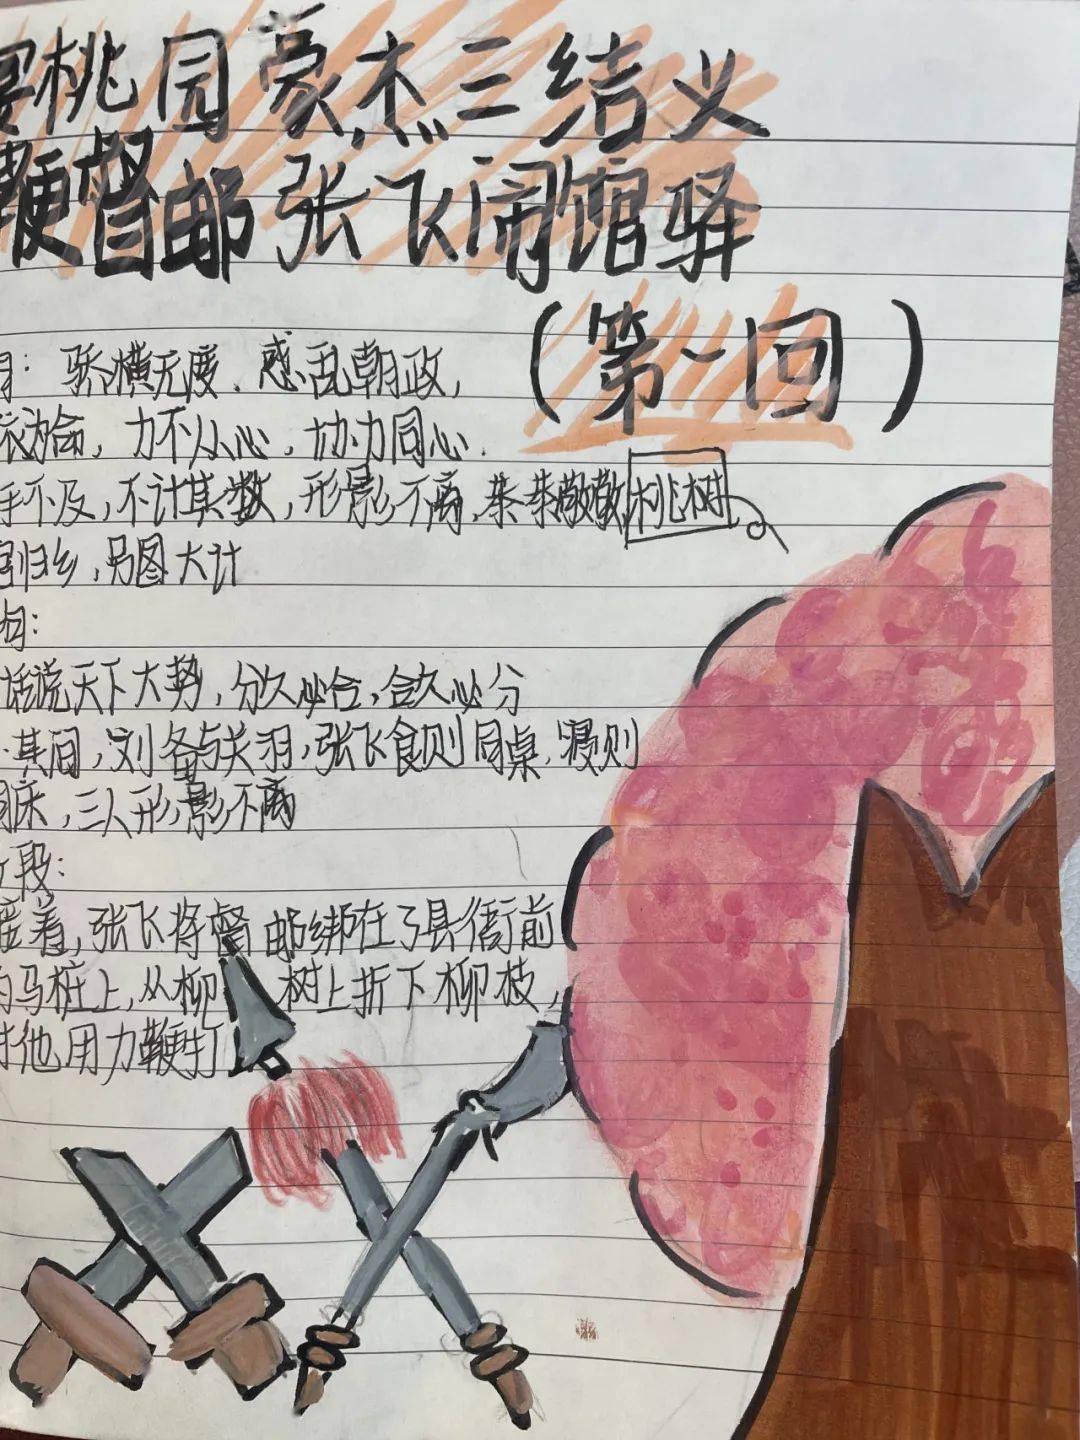 桃园豪杰三结义
鞭督邮张飞闹馆驿
(第一回)
:骄横无度、惑乱朝政,
为命,力不从心,协力同心.
手不及,不计其数,形影不离,恭恭敬敬,桃树
归乡,另图大计
:
话说天下大势,分久必合,合久必分
其间,刘备与关羽,张飞食则同桌,寝则
同床,三人形影不离
段:
着,张飞将督邮绑在了县衙前
马桩上,从柳树上折下柳枝,
他用力鞭打